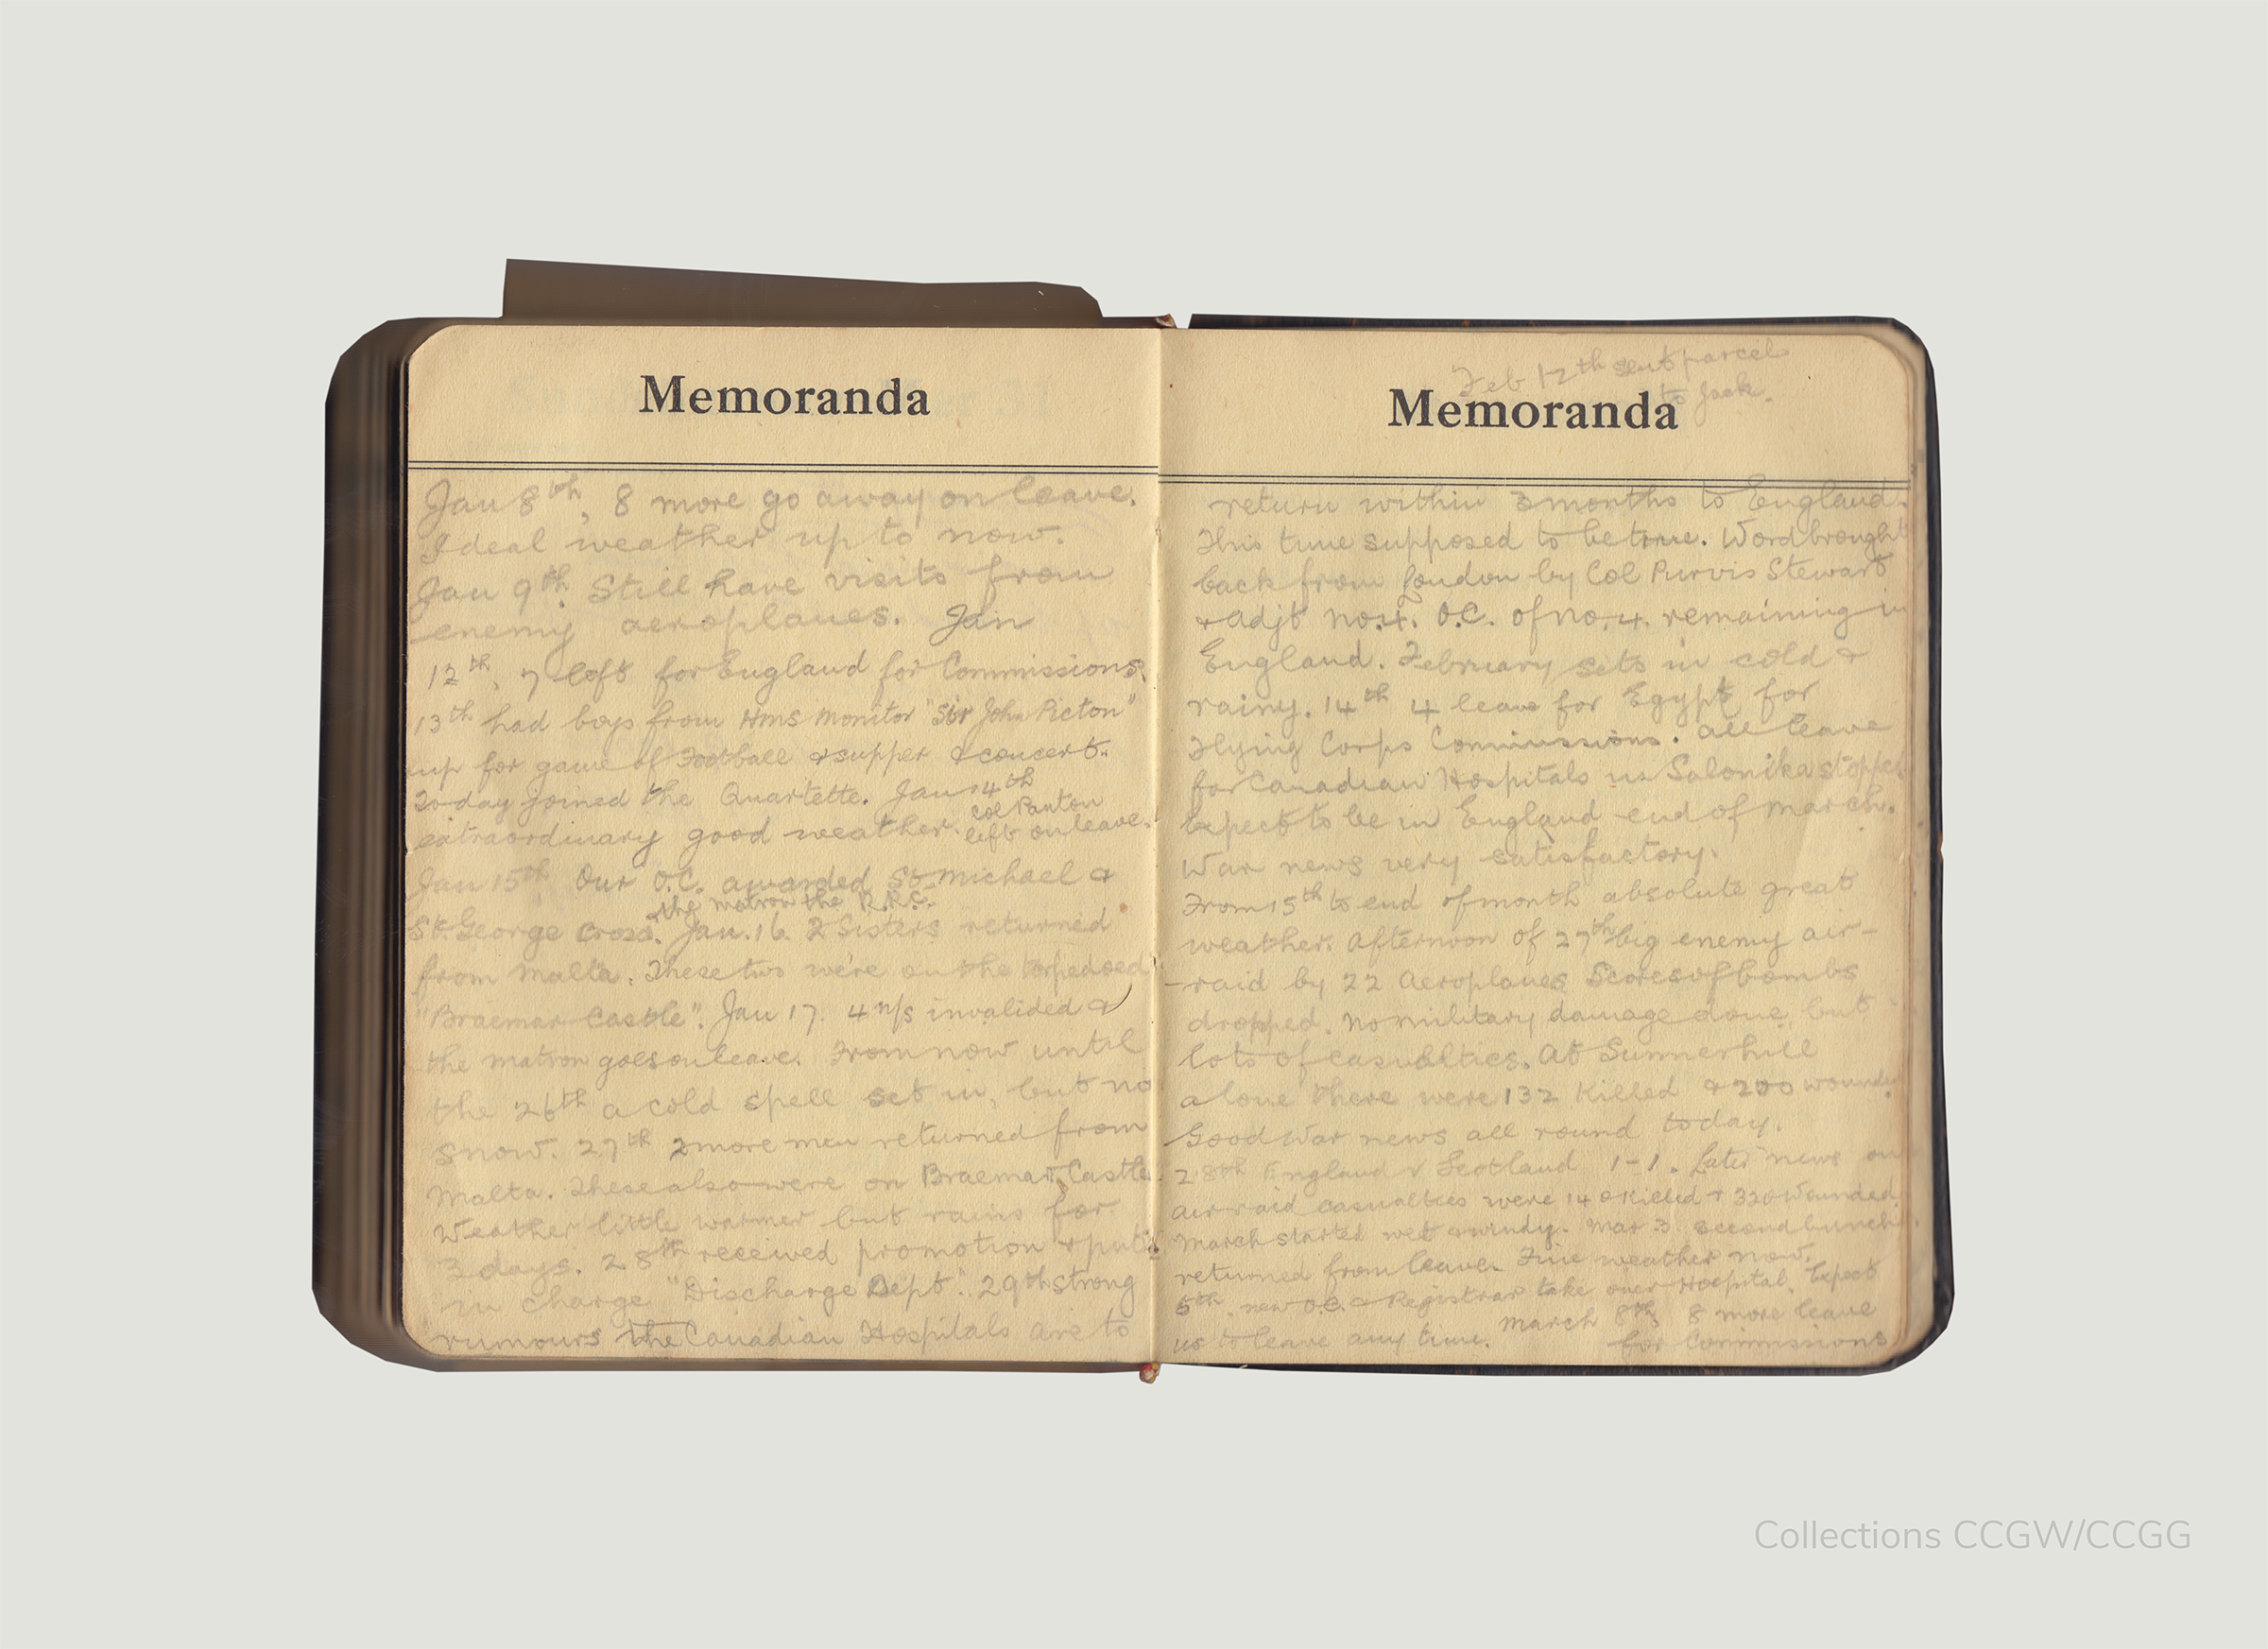 Memoranda
Jan 8th, 8 more go away on leave.
Ideal weather up to now.
Jan 9th. Still have visits from
enemy aeroplanes. Jan
12th, 7 left for England for Commissions.
13th had boys from HMS Monitor "Sir John Picton"
up for game of Football & supper & concert.
Today joined the Quartette. Jan 14th
extraordinary good weather. Col Panton
left on leave.
Jan 15th Our O.C. awarded St. Michael &
& the matron the R.R.C.
St. George Cross. Jan. 16. 2 Sisters returned
from Malta. These two were on the torpedoed
"Braemar Castle". Jan 17. 4 n/s invalided &
the matron goes on leave. From now until
the 26th a cold spell set in, but no
snow. 27th 2 more men returned from
Malta. These also were on Braemar Castle.
Weather little warmer but rains for
3 days. 28th received promotion & put
in charge "Discharge Dept". 29th strong
rumours the Canadian Hospitals are to
Feb 12th sent parcel
to Jack.
Memoranda
return within 3 months to England.
This time supposed to be true. Word brought
back from London by Col Purvis Stewart
& Adjt No.4. O.C. of No.4. remaining in
England. February sets in cold &
rainy. 14th 4 leave for Egypt for
Flying Corps Commissions. All leave
for Canadian Hospitals in Salonika stopped
Expect to be in England end of March.
War news very satisfactory.
From 15th to end of month absolute great
weather. Afternoon of 27th big enemy air-
-raid by 22 Aeroplanes Scores of bombs
dropped. No military damage done, but
lots of casualties. At Summerhill
alone there were 132 Killed & 200 wounded
Good War news all round today.
28th England v Scotland 1-1. Later news on
air-raid casualties were 140 Killed & 320 Wounded
March started wet & windy. Mar 3. second bunch
returned from leave. Fine weather now.
5th. new O.C. & Registrar take over Hospital. Expect
us to leave any time. March 8th 8 more leave
for Commissions
Collections CCGW/CCGG